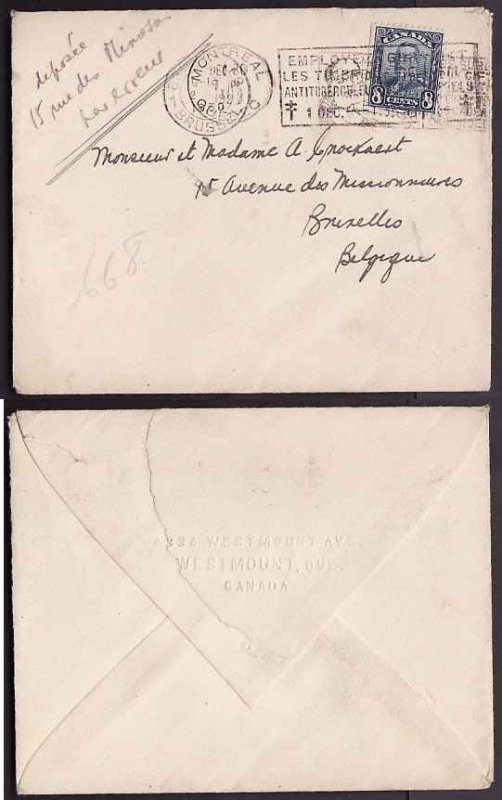 déposée
15 rue des Mimosas
par erreur
MONTREAL
DEC 20
BRUSSELS
EMPLOYEZ
LES TIMBRES
ANTITUBERCULEUX
1 DEC.
CANADA
8 CENTS 8
Monsieur et Madame A. Crockaert
15 Avenue des Missionnaires
Bruxelles
Belgique
668
4334 WESTMOUNT AVE.
WESTMOUNT, QUE.
CANADA